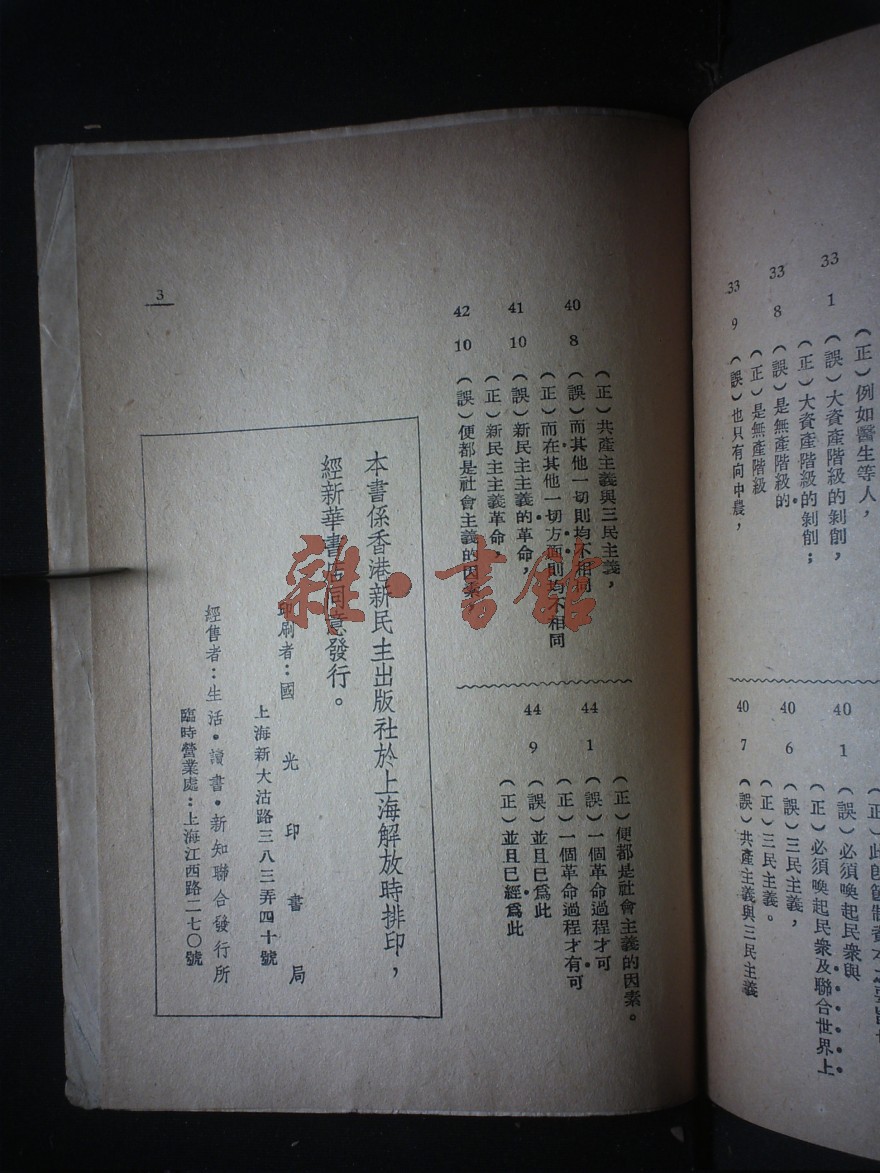 (正)例如醫生等人,
33 1 (誤)大資產階級的剝削,
(正)大資產階級的剝削;
33 8 (誤)是無產階級的
(正)是無產階級
33 9 (誤)也只有向中農,
40 1 (誤)必須喚起民衆與
(正)必須喚起民衆及聯合世界上
40 6 (誤)三民主義,
(正)三民主義。
40 7 (誤)共產主義與三民主義
(正)共產主義與三民主義,
40 8 (誤)而其他一切則均不相同
(正)而在其他一切方面則均不相同
41 10 (誤)新民主主義的革命,
(正)新民主主義革命,
42 10 (誤)便都是社會主義的因素
(正)便都是社會主義的因素。
44 1 (誤)一個革命過程才可
(正)一個革命過程才有可
44 9 (誤)並且已爲此
(正)並且已經爲此
本書係香港新民主出版社於上海解放時排印,
經新華書店同意發行。
印刷者:國光印書局
上海新大沽路三八三弄四十號
經售者:生活•讀書•新知聯合發行所
臨時營業處:上海江西路二七〇號
3
雜•書館